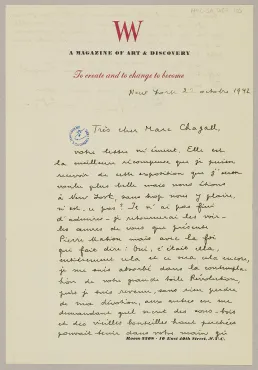 VVV
A MAGAZINE OF ART & DISCOVERY
To create and to change to become
New York 2 octobre 1942
Très cher Marc Chagall,
votre lettre m'émeut. Elle est
la meilleure récompense que je puisse
recevoir de cette exposition que j'eusse
voulu plus belle mais nous étions
à New York, sans trop nous y plaire,
n'est-ce pas? Je n'ai pas fini
d'admirer - je retournerai les voir -
les œuvres de vous que présente
Pierre Matisse mais avec la foi
qui fait dire: Oui, c'était cela,
entièrement cela et ce sera cela encore,
je me suis absorbé dans la contempla-
tion de votre grande toile Révolution,
puis je suis revenu, sans rien perdre
de ma dévotion, aux autres en me
demandant quel secret des sous-bois
et des vieilles bouteilles haut perchées
pouvait tenir dans votre main qui
Room 2208 · 10 East 40th Street, N.Y.C.